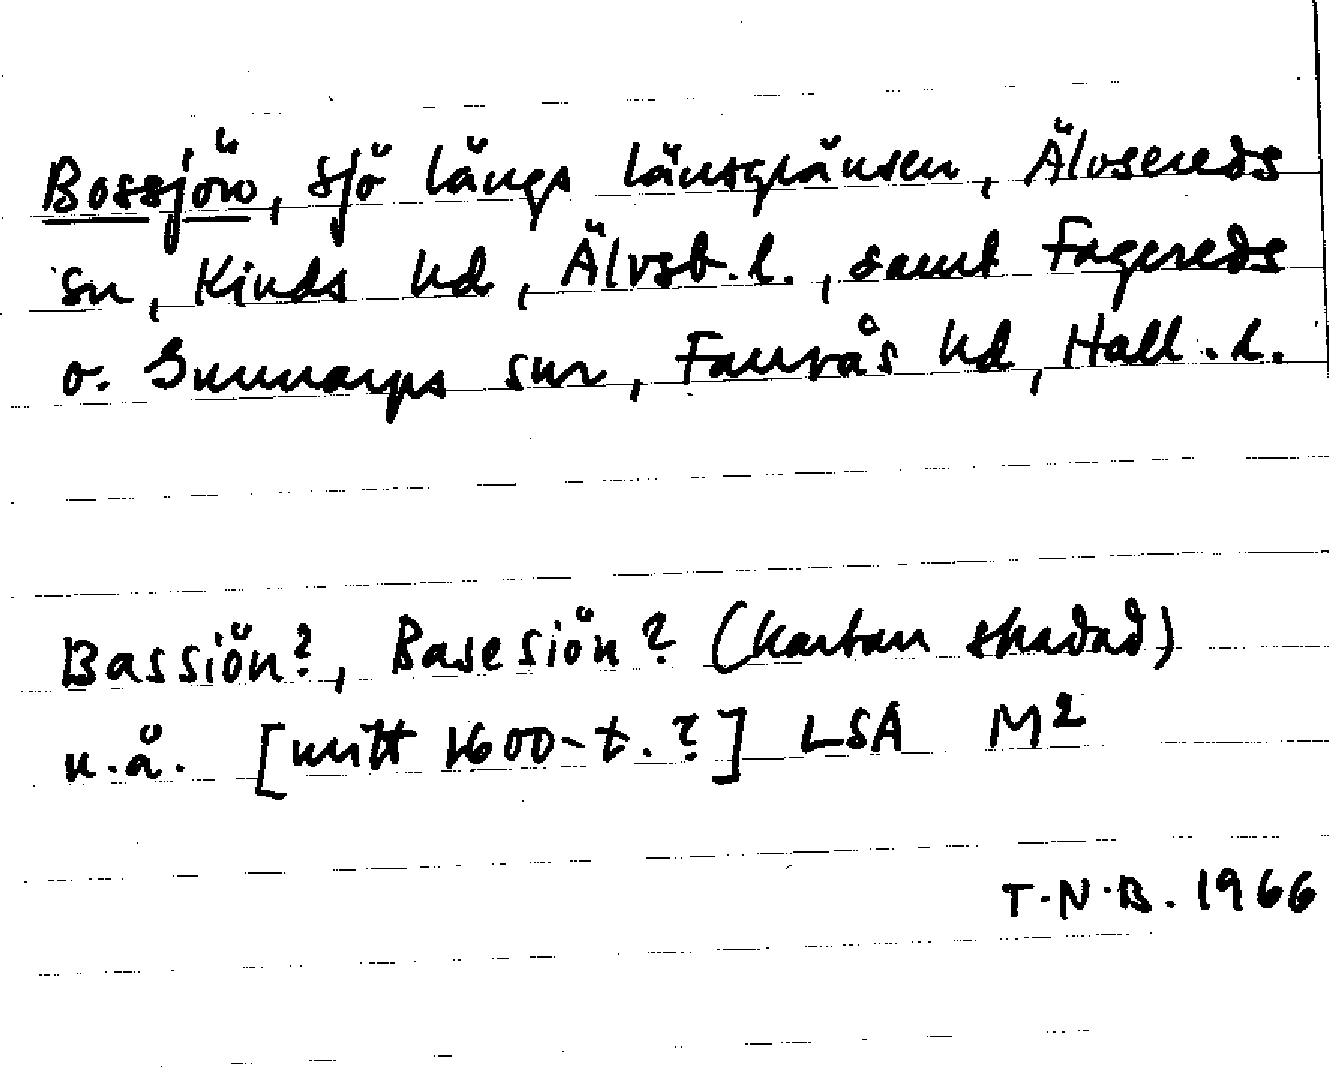 Bossjön, sjö längs länsgränsen, Älvsereds
sn, Kinds hd, Älvsb. l., samt Fagereds
o. Gunnarps snr, Faurås hd, Hall. l.
Bassiön?, Basesiön? (kartan skadad)
u.å. [mitt 1600-t.?] LSA M²
T.N.B. 1966